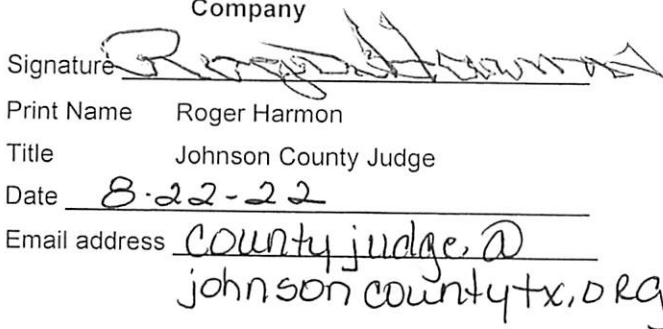 Company
Signature Roger Harmon
Print Name Roger Harmon
Title Johnson County Judge
Date 8-22-22
Email address countyjudge.@
johnsoncountytx.org